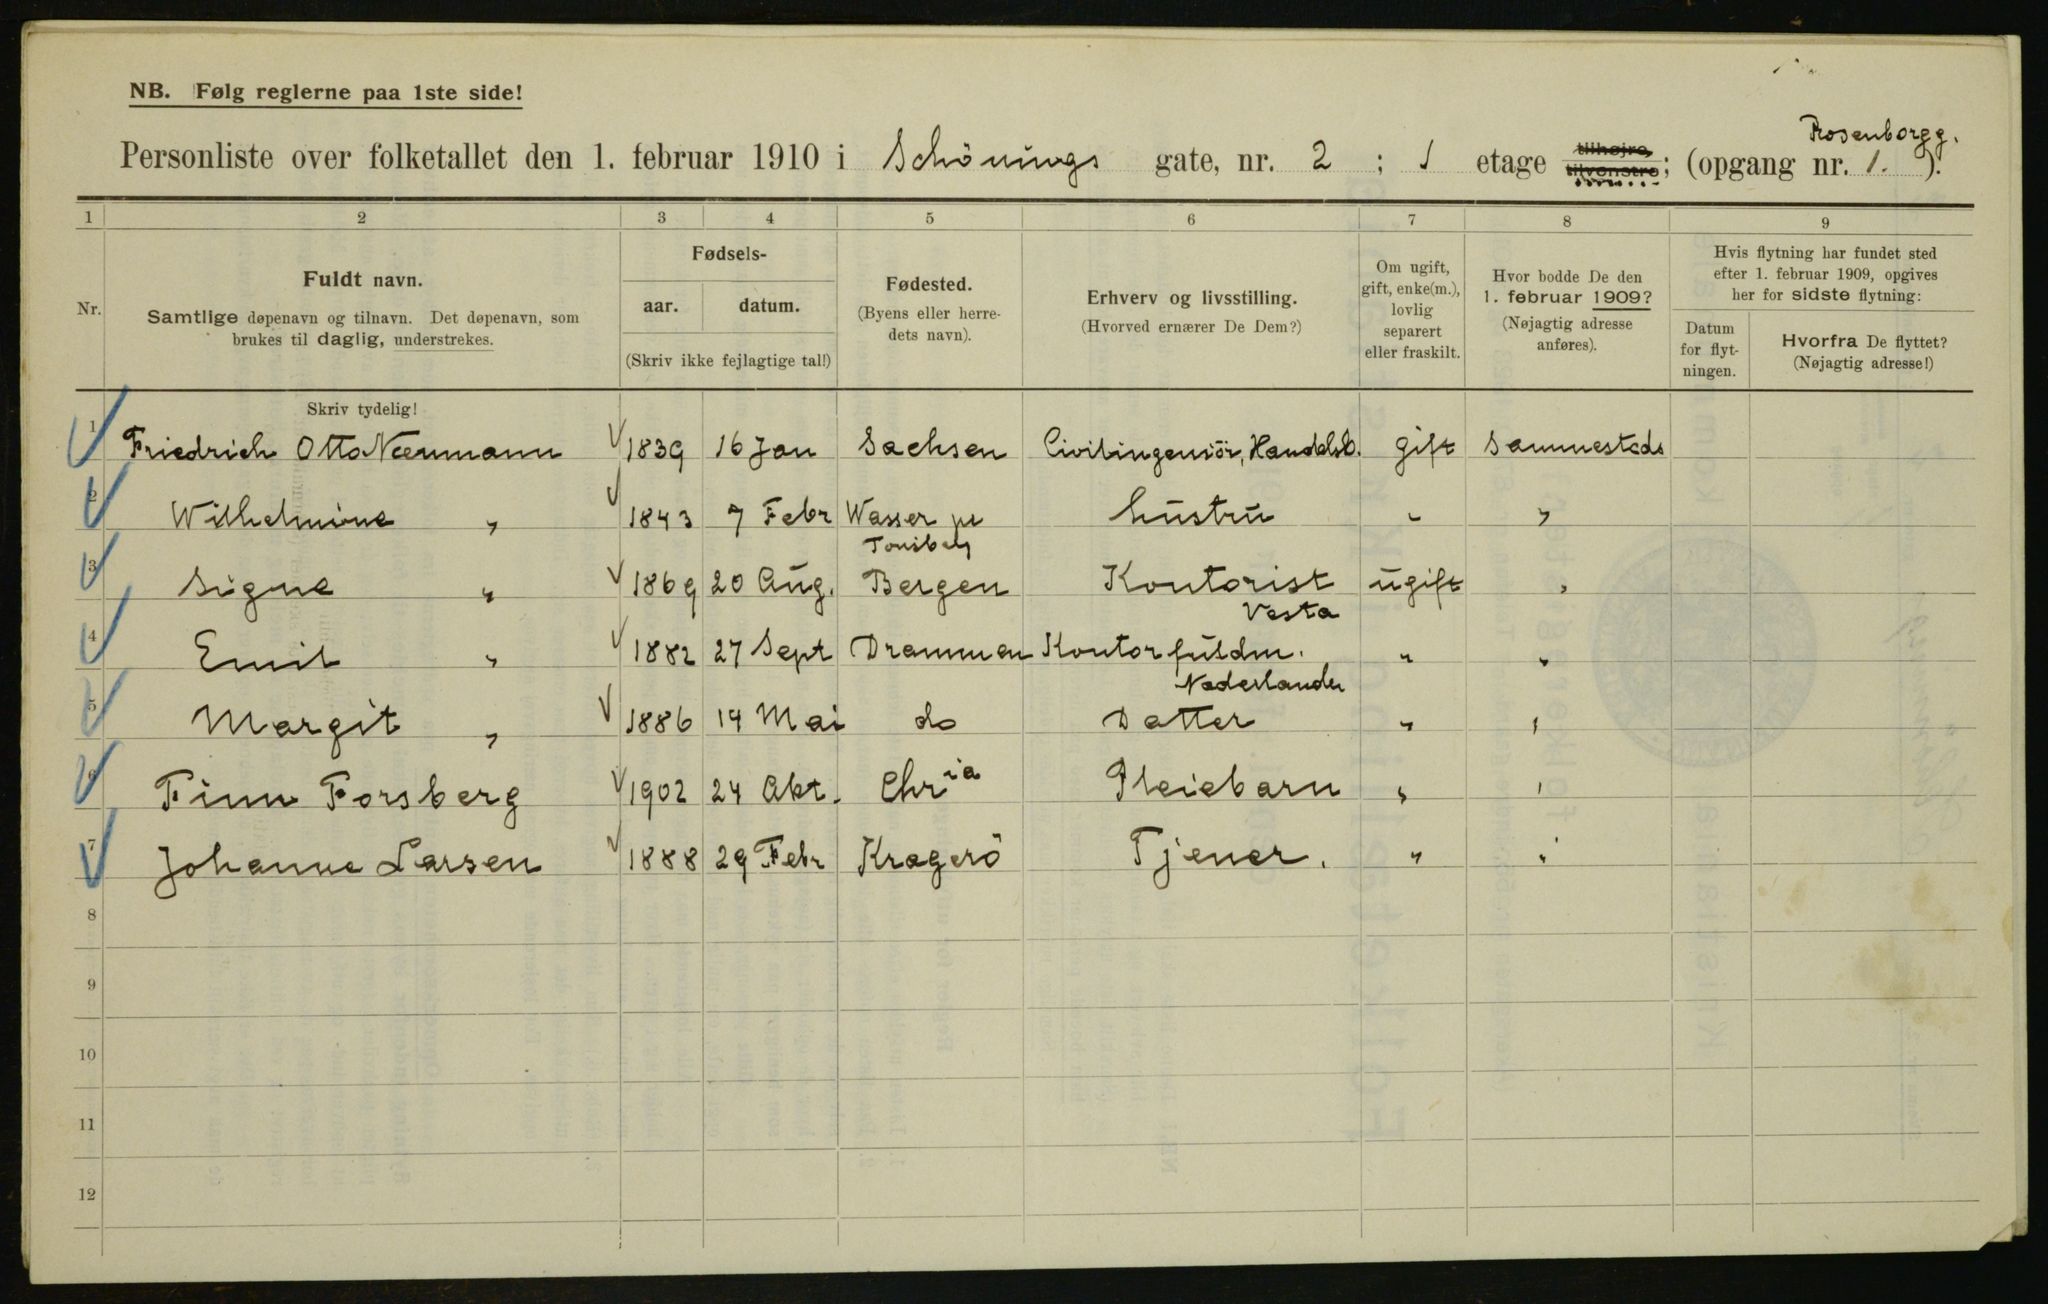 NB. Følg reglerne paa 1ste side!
Rosenborgg.
Personliste over folketallet den 1. februar 1910 i Schönings gate, nr. 2 ; 1 etage tilhøjre, tilvenstre; (opgang nr. 1. ).
1 2 3 4 5 6 7 8 9
Nr.
Fuldt navn.
Samtlige døpenavn og tilnavn. Det døpenavn, som
brukes til daglig, understrekes.
Fødsels-
aar. datum.
(Skriv ikke fejlagtige tal!)
Fødested.
(Byens eller herre-
dets navn).
Erhverv og livsstilling.
(Hvorved ernærer De Dem?)
Om ugift,
gift, enke(m.),
lovlig
separert
eller fraskilt.
Hvor bodde De den
1. februar 1909?
(Nøjagtig adresse
anføres).
Hvis flytning har fundet sted
efter 1. februar 1909, opgives
her for sidste flytning:
Datum
for flyt-
ningen.
Hvorfra De flyttet?
(Nøjagtig adresse!)
Skriv tydelig!
1 Friedrich Otto Neumann 1839 16 Jan Sachsen Civilingeniör, Handelsb. gift Sammesteds
2 Wilhelmine " 1843 7 Febr Wasser hustru " "
3 Signe " 1869 20 Aug. Bergen Kontorist ugift "
Vesta
4 Emil " 1882 27 Sept Drammen Kontorfuldm. " "
Nederlander
5 Margit " 1886 14 Mai do Datter " "
6 Finn Forsberg 1902 24 Okt. Chria Pleiebarn " "
7 Johanne Larsen 1888 29 Febr Kragerö Tjener. " "
8
9
10
11
12